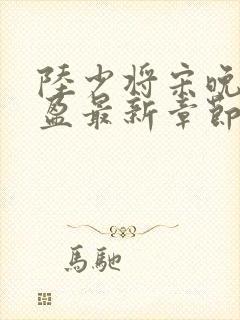 陸少將宋晚
盈最新章節
馬馳